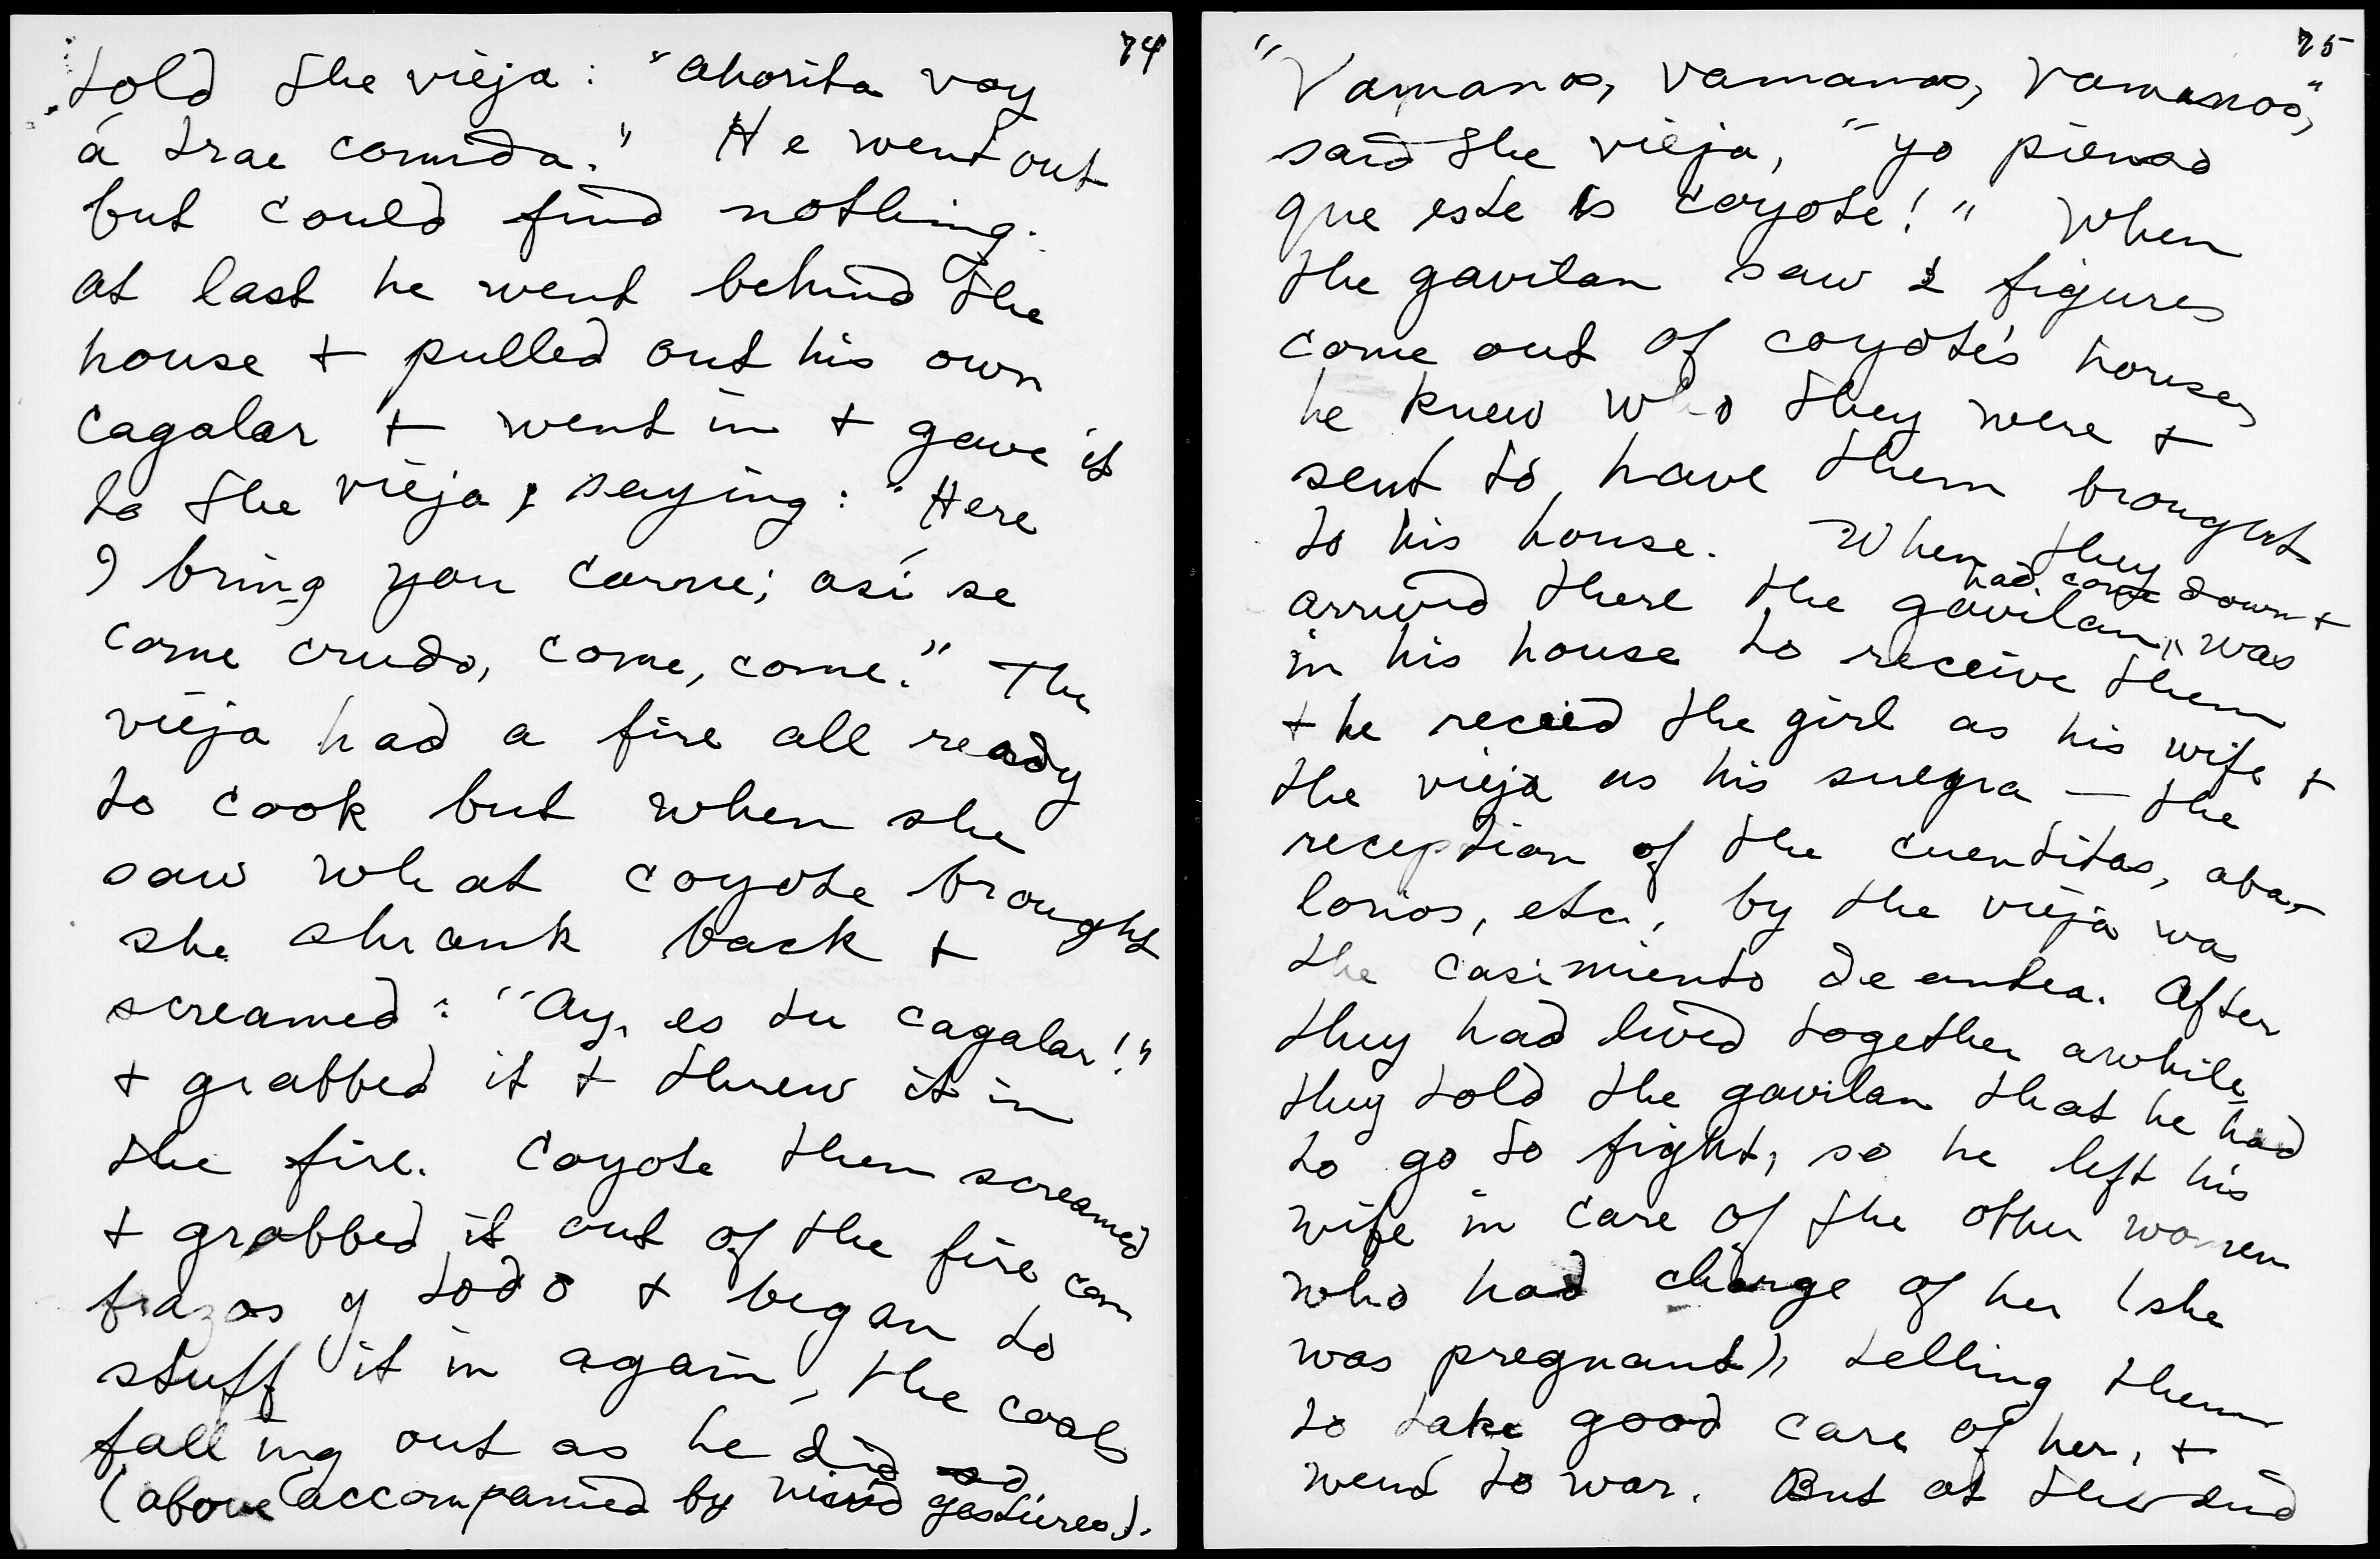 74
told the vieja: "Ahorita voy
á trae comida." He went out
but could find nothing.
At last he went behind the
house + pulled out his own
cagalar + went in + gave it
to the vieja, saying: "Here
I bring you carne; así se
come crudo, come, come." The
vieja had a fire all ready
to cook but when she
saw what coyote brought
she shrank back +
screamed: "Ay, es tu cagalar!"
+ grabbed it + threw it in
the fire. Coyote then screamed
+ grabbed it out of the fire con
brazas y todo + began to
stuff it in again, the coals
falling out as he did so
(above accompanied by vivid gestures).
75
"Vamanos, vamanos, vamanos,"
said the vieja, "yo pienso
que este is coyote!" When
the gavilan saw 2 figures
come out of coyote's house,
he knew who they were +
sent to have them brought
to his house. When they
had come down +
arrived there the gavilan was
in his house to receive them
+ he recied the girl as his wife +
the vieja as his suegra — the
reception of the cuentitas, aba-
lorios, etc., by the vieja was
the casimiento de antea. After
they had lived together awhile,
they told the gavilan that he had
to go to fight, so he left his
wife in care of the other women
who had charge of her (she
was pregnant), telling them
to take good care of her, +
went to war. But at the end